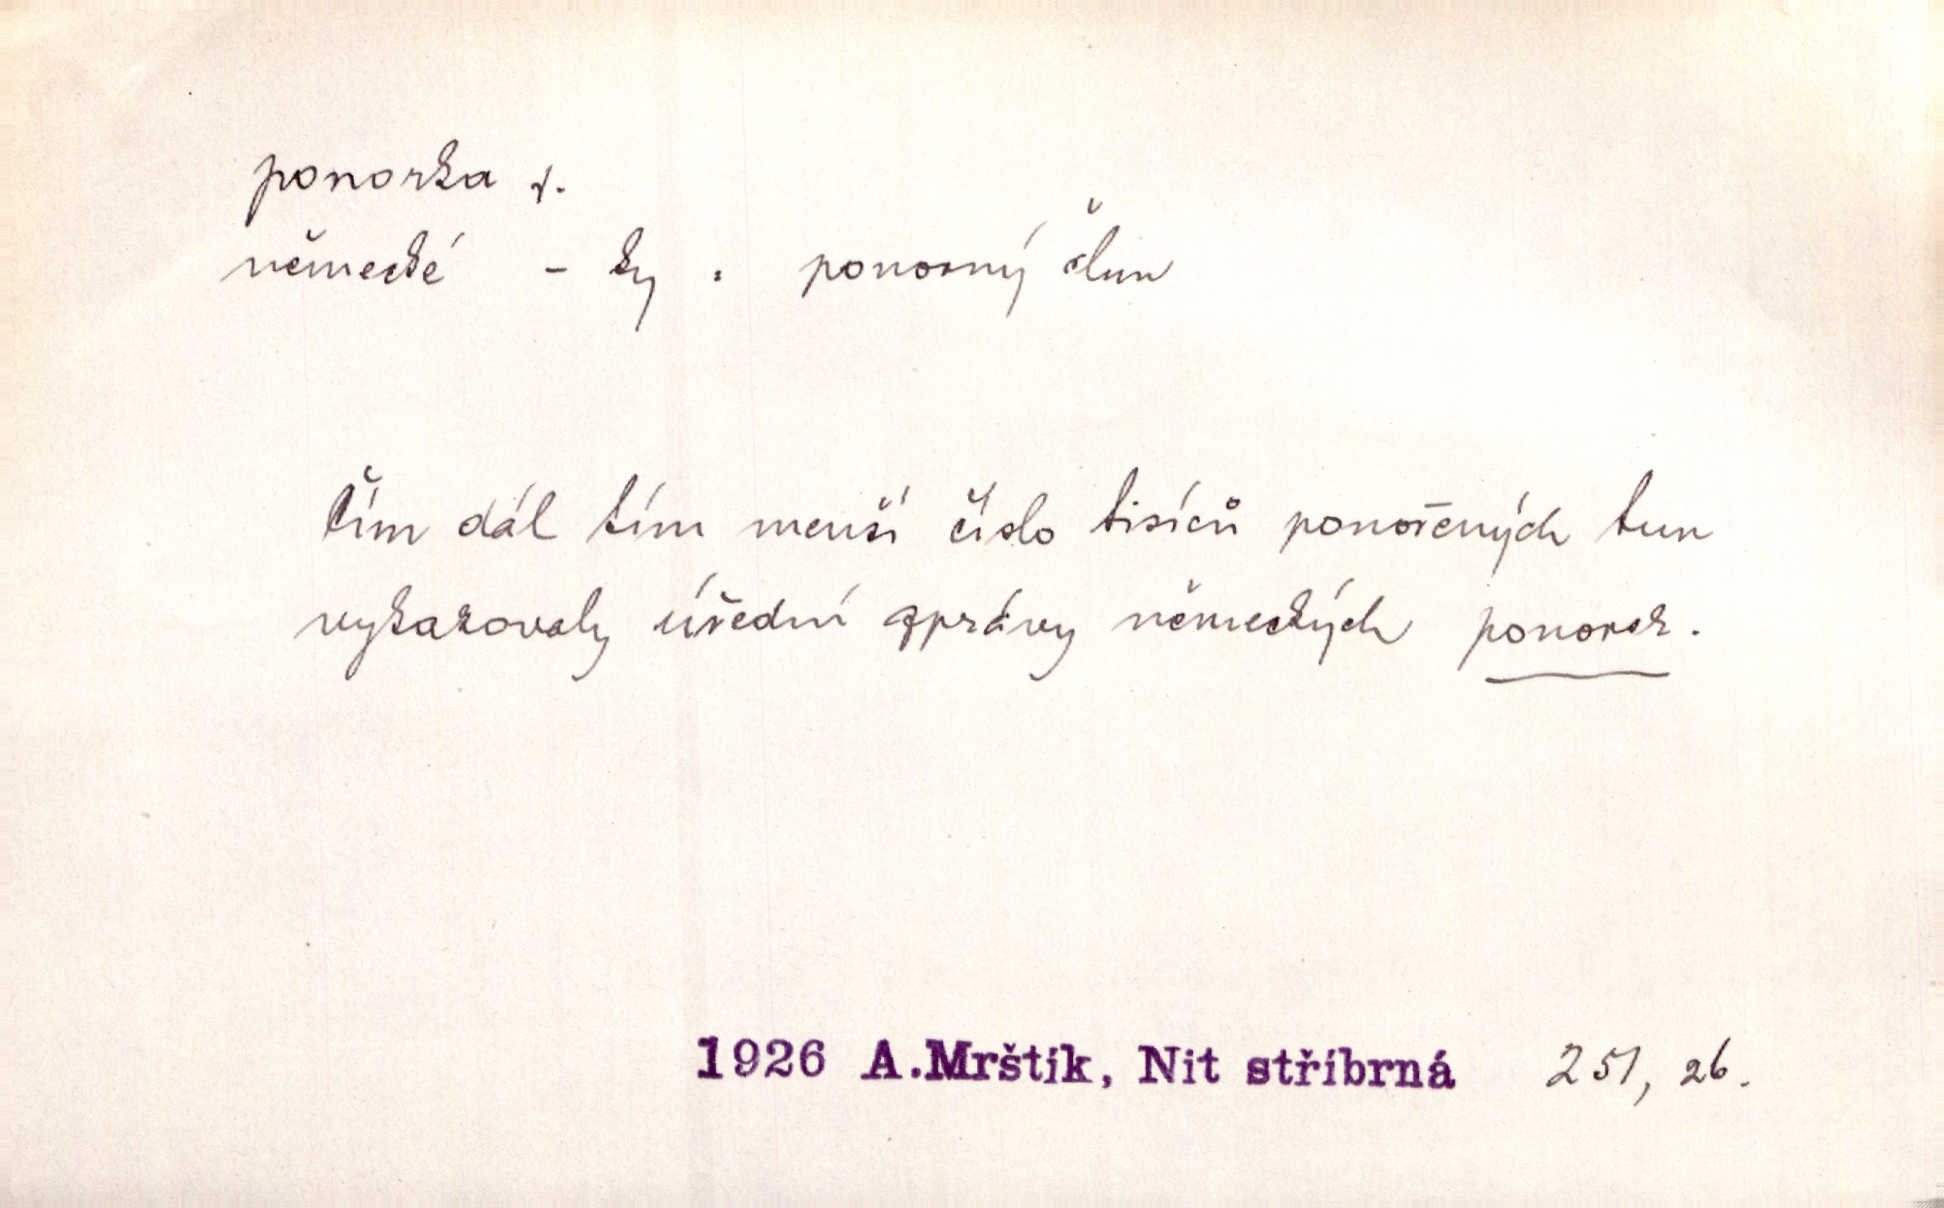 ponorka v.
německé - ky : ponorný člun
Čím dál tím menší číslo tisíců ponořených tun
vykazovaly úřední zprávy německých ponorek.
1926 A.Mrštík, Nit stříbrná 251, 26.